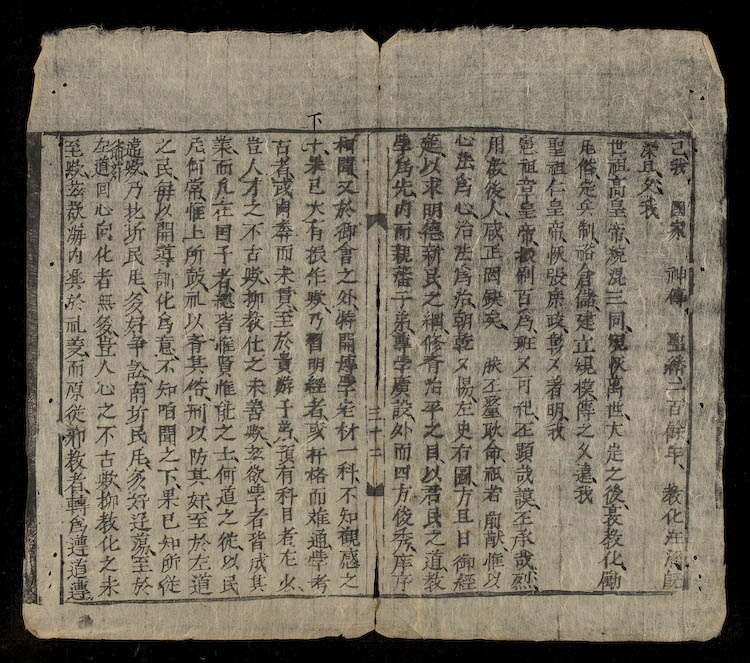 己我 國家 神傳 聖繼二百餘年教化
世祖高皇帝統混三同規恢萬世大定之後裒教化勵
風俗定兵制裕倉儲建立規模傳之久遠我
聖祖仁皇帝恢張庶政彰又著明我
憲祖章皇帝振刷百為班又可祀丕顯哉謨丕承哉烈
用啟後人咸正罔缺矣 肰丕釐耿命祇若 前猷惟以
心法為心治法為治朝乾夕惕左史右圖方且日御經
筵以求明德新民之綱修齊治平之目以君民之道教
學為先內而親藩子弟尊學廣設外而四方俊秀庠序
相聞又於御會之外特開博學宏材一科不知觀感之
下果已大有振作歟乃習明經者或扞格而難通學考
古者或鹵莽而未貫至於貴游子弟預有科目者尤少
豈人才之不古歟抑教化之未善歟茲欲學者皆成其
業而凡在國子者總皆惟賢惟能之士何道之從以民
風何常惟上所鼓禮以齊其俗刑以防其奸至於左道
之民每以開導訓化為意不知咱聞之下果已知所從
違歟乃北圻民風多好爭訟南圻民風多好遊蕩至於
左道回心向化者無多豈人心之不古歟抑教化之未
至歟茲欲海內興於禮義而原從邪教者轉為遵道遵
三十二
下